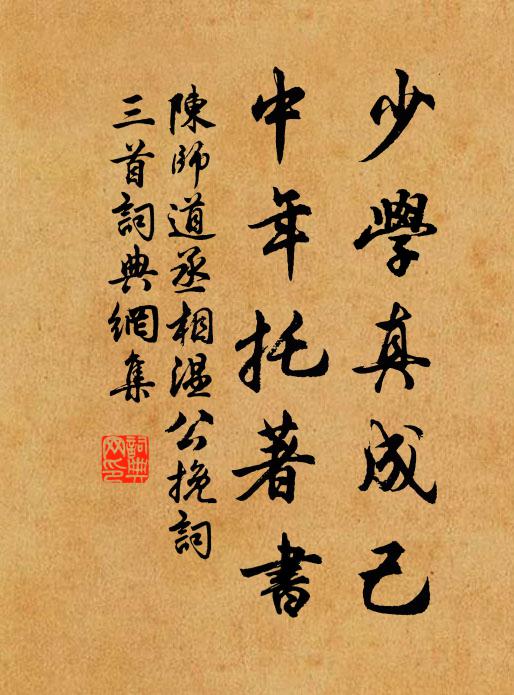 少學真成己
中年托著書
陳師道丞相溫公挽詞
三首詞典網集
詞典網印